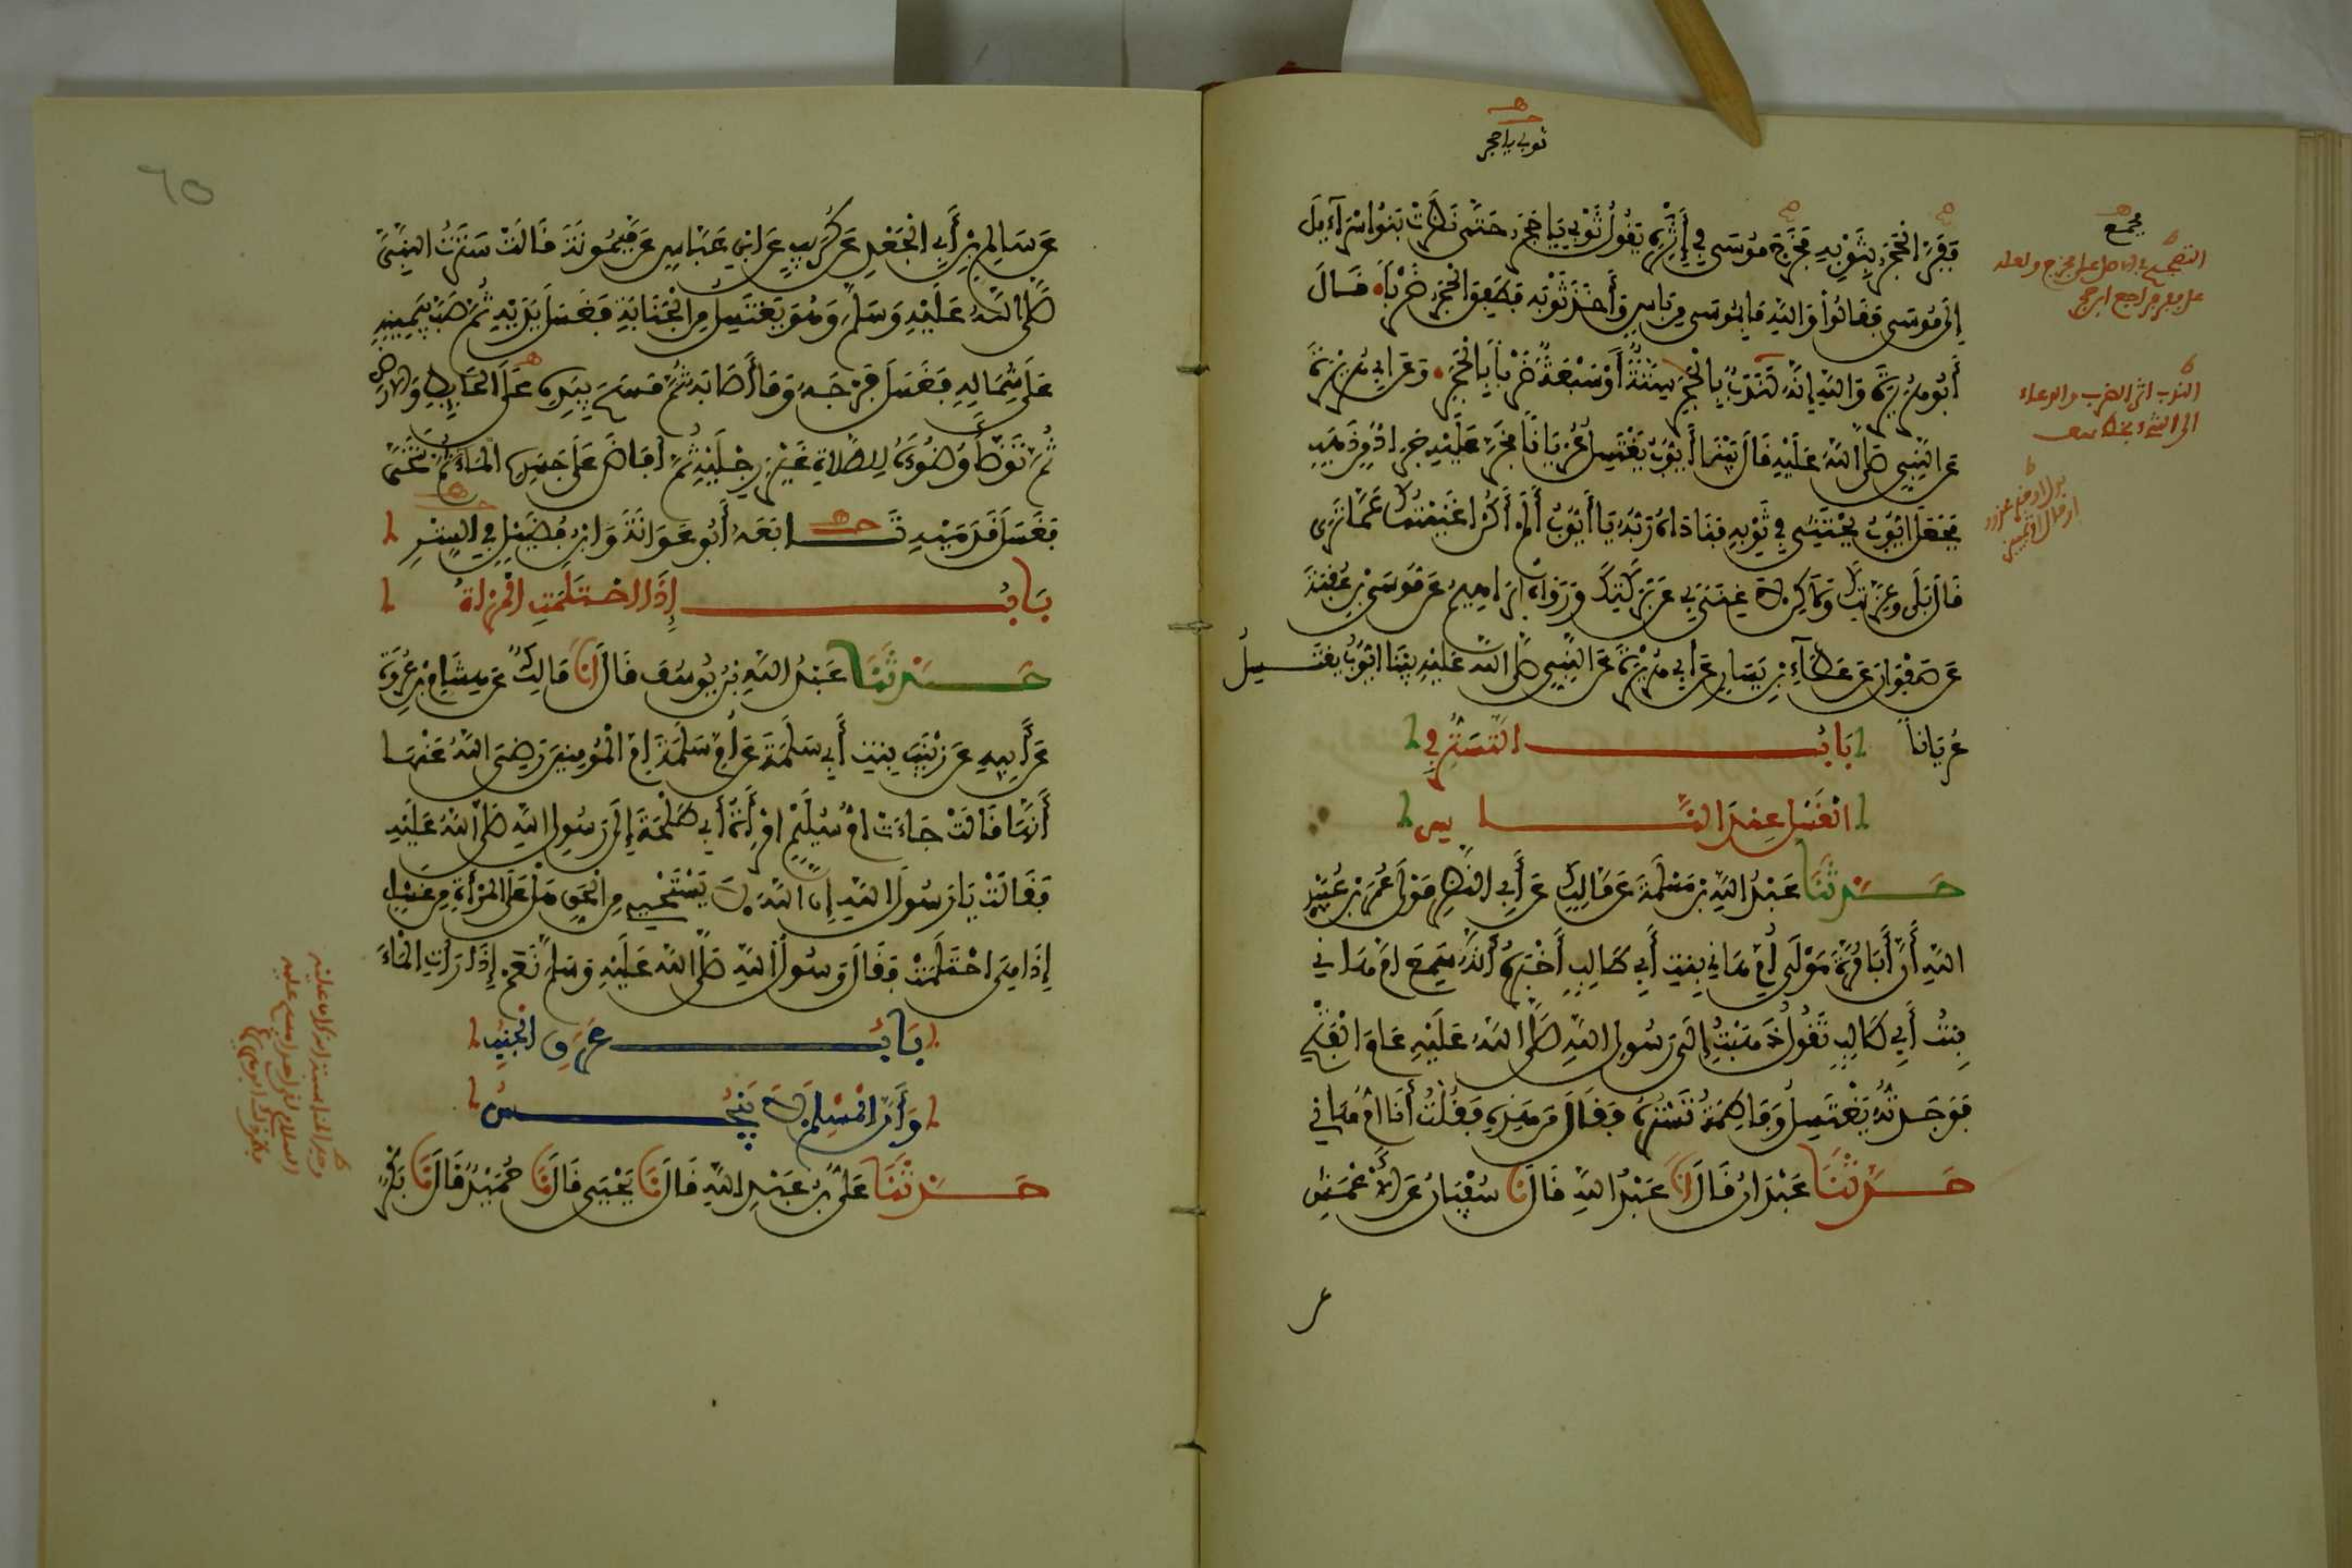 ثوبي يا حجر
فَفَرَّ الْحَجَرُ بِثَوْبِهِ فَخَرَجَ مُوسَى فِي إِثْرِهِ يَقُولُ ثَوْبِي يَا حَجَرُ حَتَّى نَظَرَتْ بَنُوا إِسْرَآءِيلَ
إِلَى مُوسَى فَقَالُوا وَاللَّهِ مَا بِمُوسَى مِنْ بَأْسٍ وَأَخَذَ ثَوْبَهُ فَطَفِقَ الْحَجَرَ ضَرْبًا فَقَالَ
أَبُو هُرَيْرَةَ وَاللَّهِ إِنَّهُ لَنَدَبٌ بِالْحَجَرِ سِتَّةٌ أَوْ سَبْعَةٌ ضَرْبًا بِالْحَجَرِ وَعَنْ أَبِي هُرَيْرَةَ
عَنِ النَّبِيِّ صَلَّى اللَّهُ عَلَيْهِ قَالَ بَيْنَمَا أَيُّوبُ يَغْتَسِلُ عُرْيَانًا فَخَرَّ عَلَيْهِ جَرَادٌ مِنْ ذَهَبٍ
فَجَعَلَ أَيُّوبُ يَحْتَثِي فِي ثَوْبِهِ فَنَادَاهُ رَبُّهُ يَا أَيُّوبُ أَلَمْ أَكُنْ أَغْنَيْتُكَ عَمَّا تَرَى
قَالَ بَلَى وَعِزَّتِكَ وَلَكِنْ لَا غِنَى بِي عَنْ بَرَكَتِكَ وَرَوَاهُ إِبْرَاهِيمُ عَنْ مُوسَى بْنِ عُقْبَةَ
عَنْ صَفْوَانَ عَنْ عَطَآءِ بْنِ يَسَارٍ عَنْ أَبِي هُرَيْرَةَ عَنِ النَّبِيِّ صَلَّى اللَّهُ عَلَيْهِ بَيْنَا أَيُّوبُ يَغْتَسِلُ
عُرْيَانًا بَابُ التَّسَتُّرِ فِي
الْغُسْلِ عِنْدَ النَّاسِ
حَدَّثَنَا عَبْدُ اللَّهِ بْنُ مَسْلَمَةَ عَنْ مَالِكٍ عَنْ أَبِي النَّضْرِ مَوْلَى عُمَرَ بْنِ عُبَيْدِ
اللَّهِ أَنَّ أَبَا مُرَّةَ مَوْلَى أُمِّ هَانِي بِنْتِ أَبِي طَالِبٍ أَخْبَرَهُ أَنَّهُ سَمِعَ أُمَّ هَانِي
بِنْتَ أَبِي طَالِبٍ تَقُولُ ذَهَبْتُ إِلَى رَسُولِ اللَّهِ صَلَّى اللَّهُ عَلَيْهِ عَامَ الْفَتْحِ
فَوَجَدْتُهُ يَغْتَسِلُ وَفَاطِمَةُ تَسْتُرُهُ فَقَالَ مَنْ هَذِهِ فَقُلْتُ أَنَا أُمُّ هَانِي
حَدَّثَنَا عَبْدَانُ قَالَ أَنَا عَبْدُ اللَّهِ قَالَ نَا سُفْيَانُ عَنِ الْأَعْمَشِ
عن
٦٥
عَنْ سَالِمِ بْنِ أَبِي الْجَعْدِ عَنْ كُرَيْبٍ عَنِ ابْنِ عَبَّاسٍ عَنْ مَيْمُونَةَ قَالَتْ سَتَرْتُ النَّبِيَّ
صَلَّى اللَّهُ عَلَيْهِ وَسَلَّمَ وَهُوَ يَغْتَسِلُ مِنَ الْجَنَابَةِ فَغَسَلَ يَدَيْهِ ثُمَّ صَبَّ بِيَمِينِهِ
عَلَى شِمَالِهِ فَغَسَلَ فَرْجَهُ وَمَا أَصَابَهُ ثُمَّ مَسَحَ بِيَدِهِ عَلَى الْحَايِطِ وَالْأَرْضِ
ثُمَّ تَوَضَّأَ وُضُوءَهُ لِلصَّلَاةِ غَيْرَ رِجْلَيْهِ ثُمَّ أَفَاضَ عَلَى جَسَدِهِ الْمَاءَ ثُمَّ تَنَحَّى
فَغَسَلَ قَدَمَيْهِ تَابَعَهُ أَبُو عَوَانَةَ وَابْنُ فُضَيْلٍ فِي السِّتْرِ
بَابُ إِذَا احْتَلَمَتِ الْمَرْأَةُ
حَدَّثَنَا عَبْدُ اللَّهِ بْنُ يُوسُفَ قَالَ أَنَا مَالِكٌ عَنْ هِشَامِ بْنِ عُرْوَةَ
عَنْ أَبِيهِ عَنْ زَيْنَبَ بِنْتِ أَبِي سَلَمَةَ عَنْ أُمِّ سَلَمَةَ أُمِّ الْمُؤْمِنِينَ رَضِيَ اللَّهُ عَنْهَا
أَنَّهَا قَالَتْ جَاءَتْ أُمُّ سُلَيْمٍ امْرَأَةُ أَبِي طَلْحَةَ إِلَى رَسُولِ اللَّهِ صَلَّى اللَّهُ عَلَيْهِ
فَقَالَتْ يَا رَسُولَ اللَّهِ إِنَّ اللَّهَ لَا يَسْتَحْيِي مِنَ الْحَقِّ هَلْ عَلَى الْمَرْأَةِ مِنْ غُسْلٍ
إِذَا هِيَ احْتَلَمَتْ فَقَالَ رَسُولُ اللَّهِ صَلَّى اللَّهُ عَلَيْهِ وَسَلَّمَ نَعَمْ إِذَا رَأَتِ الْمَاءَ
بَابُ عَرَقِ الْجُنُبِ
وَأَنَّ الْمُسْلِمَ لَا يَنْجُسُ
حَدَّثَنَا عَلِيُّ بْنُ عَبْدِ اللَّهِ قَالَ نَا يَحْيَى قَالَ نَا حُمَيْدٌ قَالَ نَا بَكْرٌ